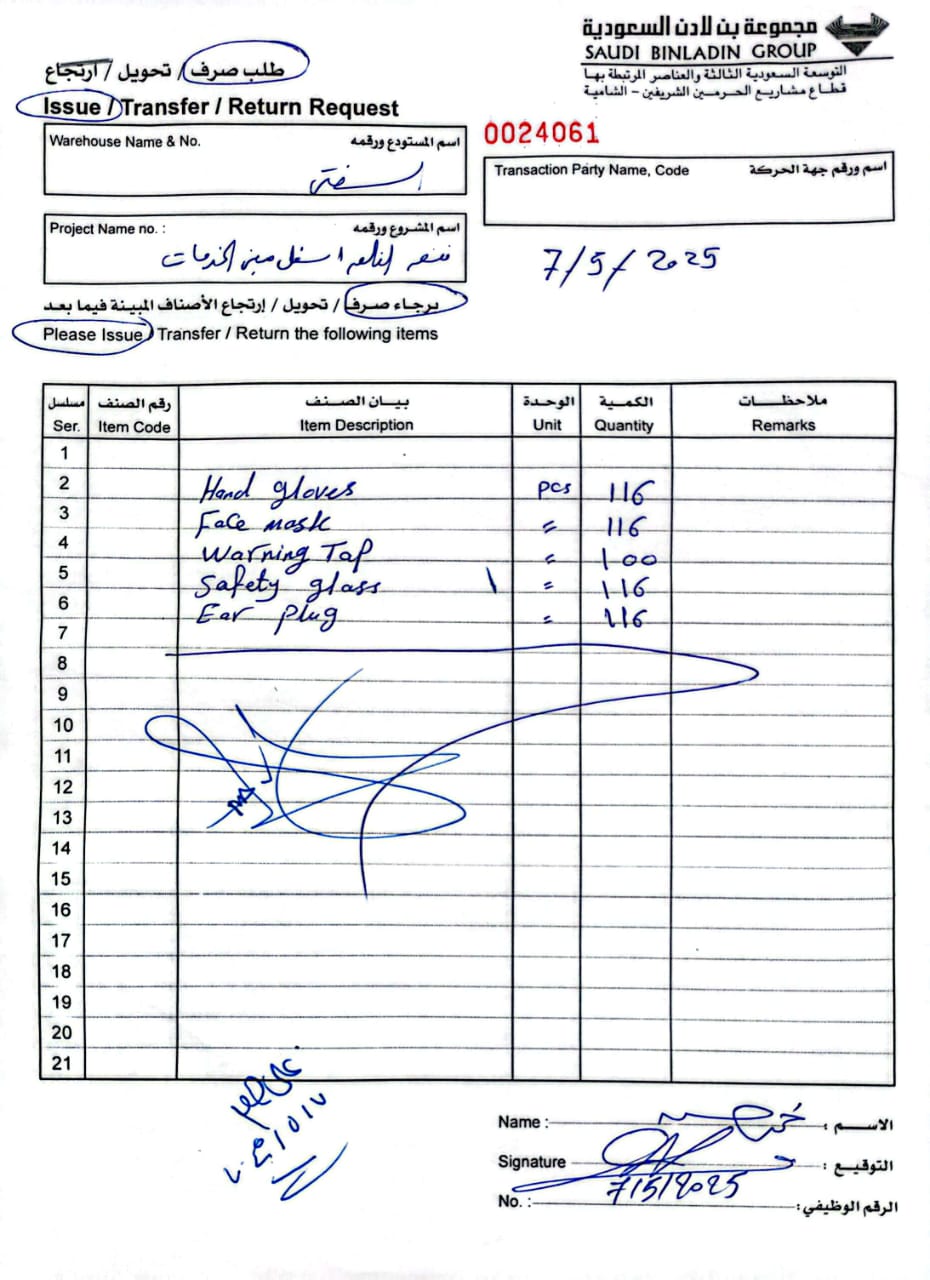 مجموعة بن لادن السعودية
SAUDI BINLADIN GROUP
التوسعة السعودية الثالثة والعناصر المرتبطة بها
قطاع مشاريع الحرمين الشريفين - الشامية
طلب صرف / تحويل / ارتجاع
Issue / Transfer / Return Request
0024061
Warehouse Name & No. اسم المستودع ورقمه
Transaction Party Name, Code اسم ورقم جهة الحركة
Project Name no. : اسم المشروع ورقمه
7/5/2025
برجاء صرف / تحويل / إرتجاع الأصناف المبينة فيما بعد
Please Issue / Transfer / Return the following items
مسلسل رقم الصنف بيــان الصنــف الوحدة الكمية ملاحظــات
Ser. Item Code Item Description Unit Quantity Remarks
1
2 Hand gloves pcs 116
3 Face mask = 116
4 Warning Tap = 100
5 Safety glass = 116
6 Ear plug = 116
7
8
9
10
11
12
13
14
15
16
17
18
19
20
21
Name : الاســـم :
Signature التوقيـع :
7/5/2025
No. : الرقم الوظيفي: